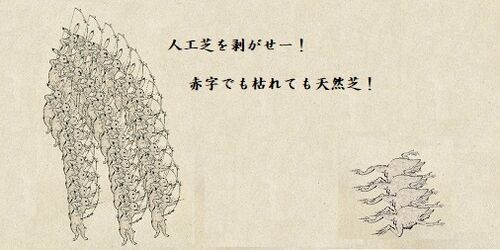 人工芝を剥がせー！
赤字でも枯れても天然芝！